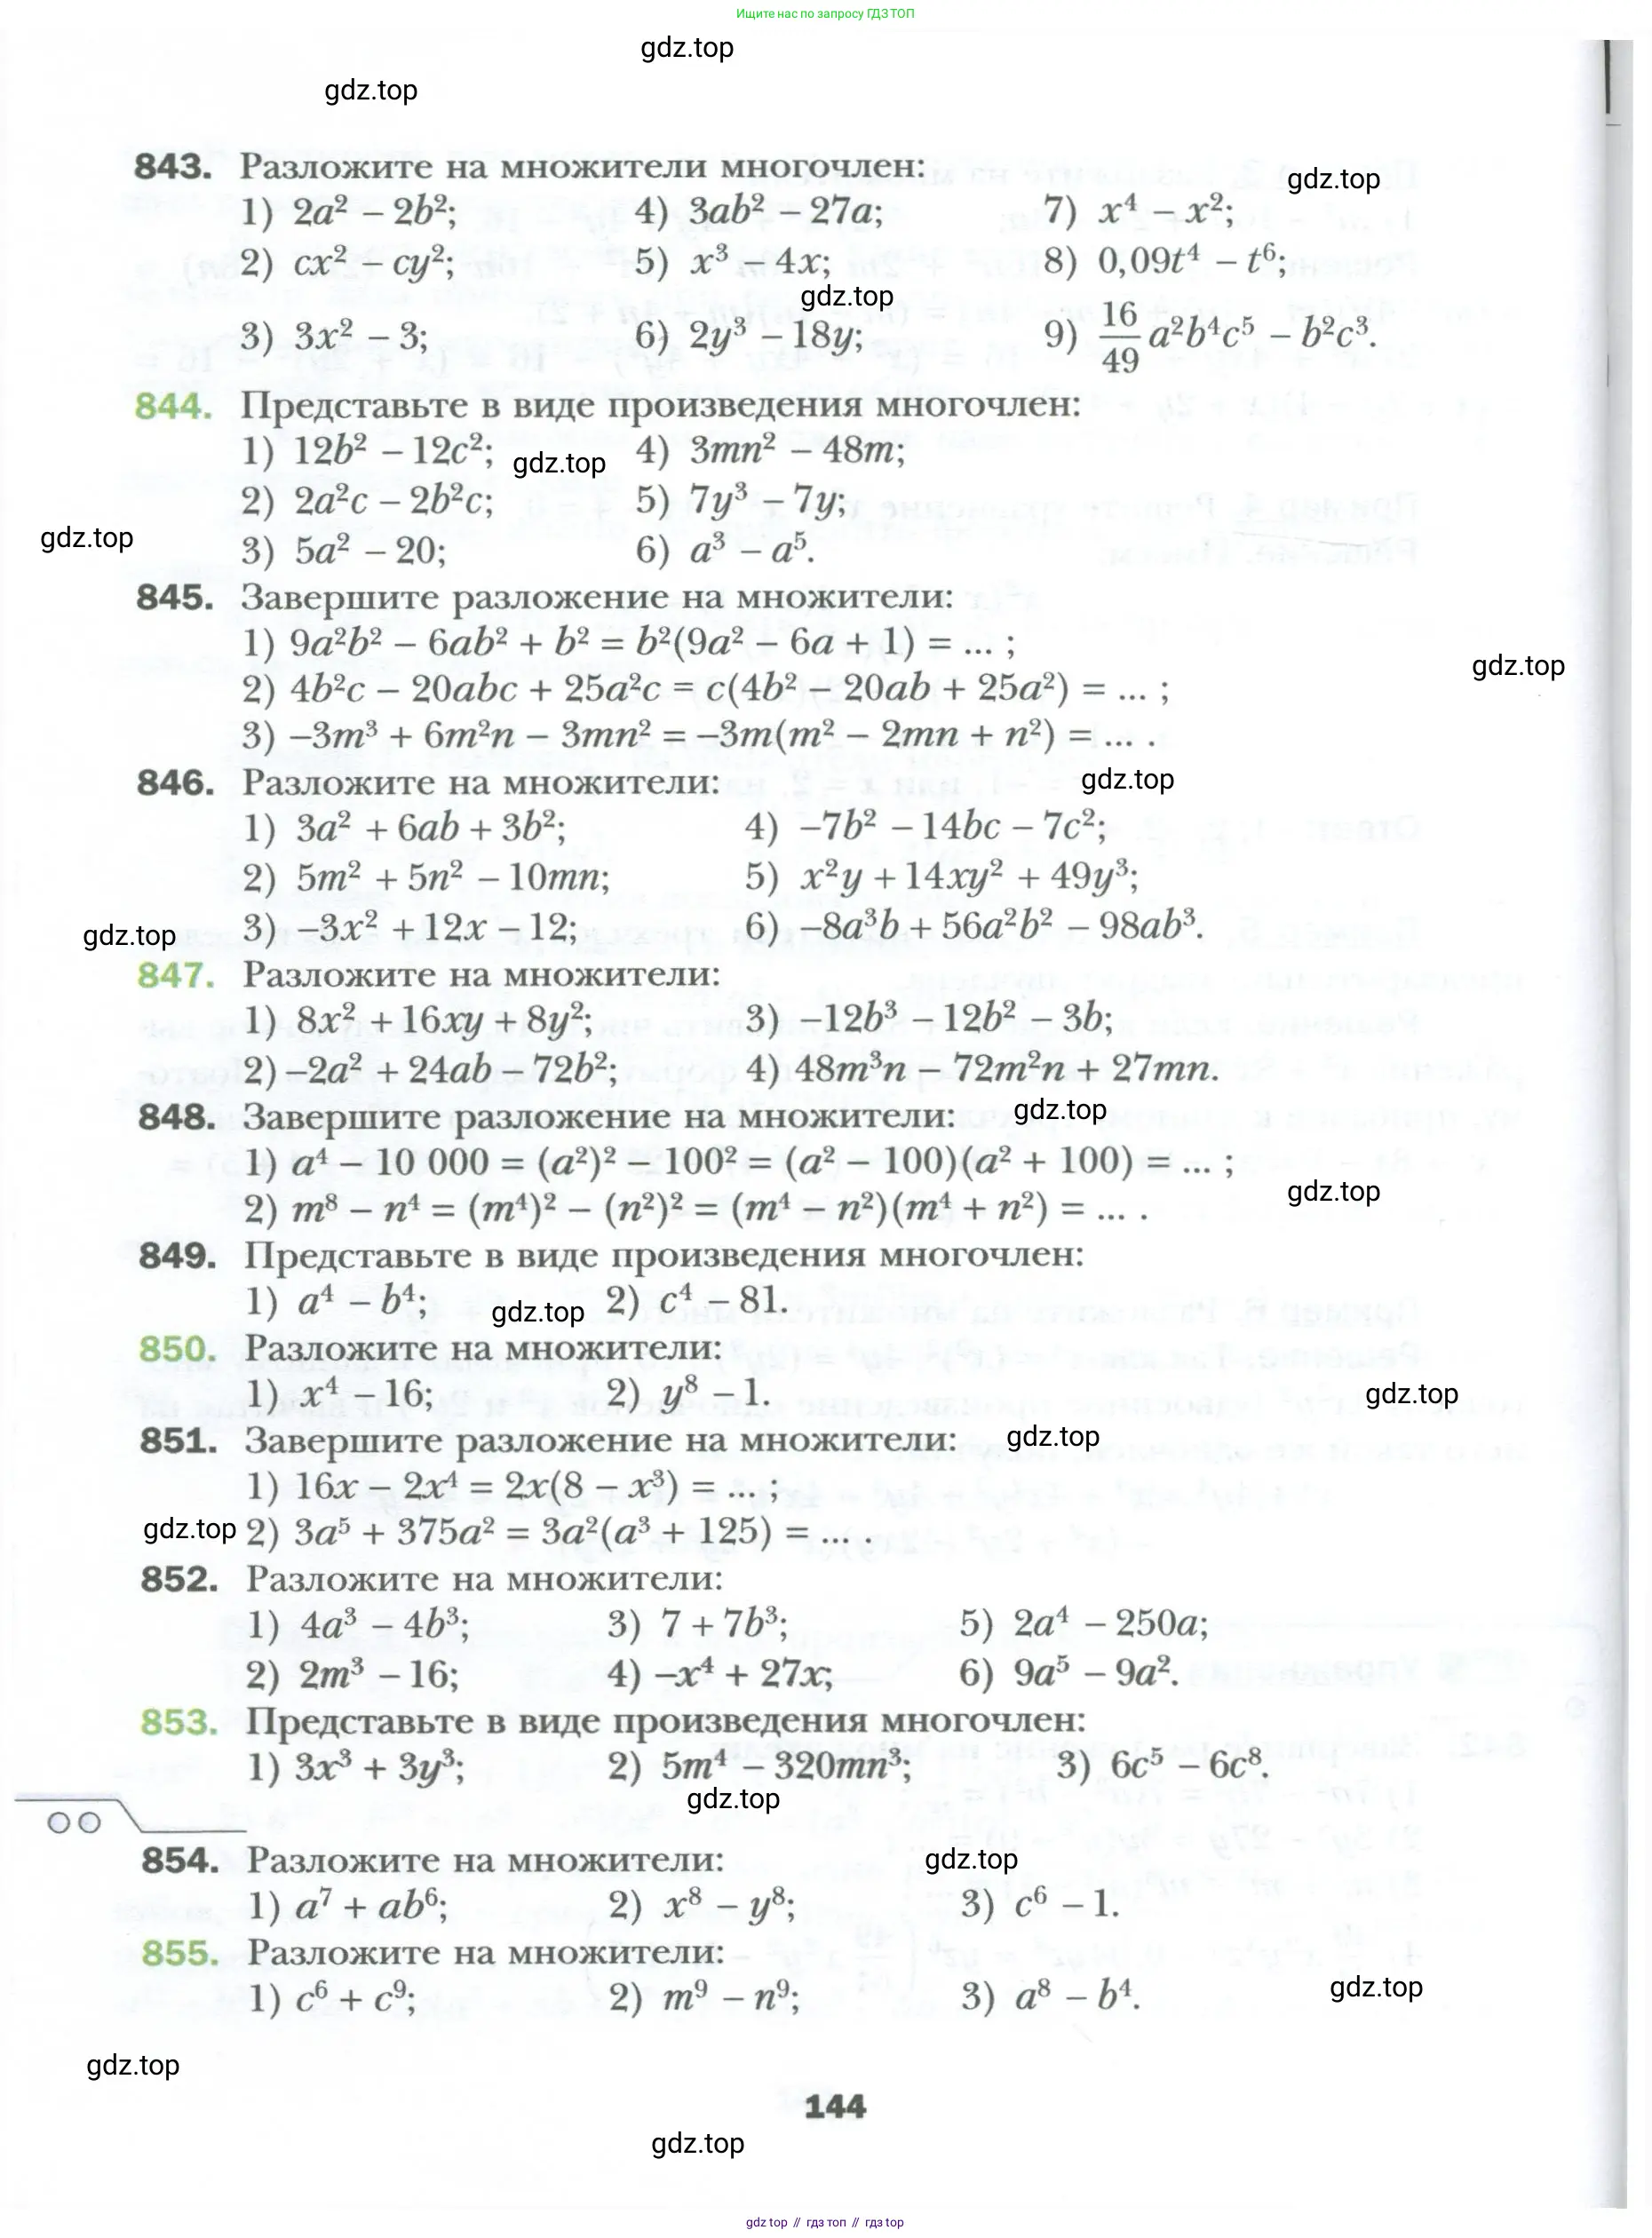 Ищите нас по запросу ГДЗ ТОП
gdz.top
gdz.top
843. Разложите на множители многочлен:
gdz.top
1) 2a² − 2b²; 4) 3ab² − 27a; 7) x⁴ − x²;
2) cx² − cy²; 5) x³ − 4x; 8) 0,09t⁴ − t⁶;
gdz.top
3) 3x² − 3; 6) 2y³ − 18y; 9) 16/49 a²b⁴c⁵ − b²c³.
844. Представьте в виде произведения многочлен:
1) 12b² − 12c²; gdz.top 4) 3mn² − 48m;
2) 2a²c − 2b²c; 5) 7y³ − 7y;
gdz.top
3) 5a² − 20; 6) a³ − a⁵.
845. Завершите разложение на множители:
1) 9a²b² − 6ab² + b² = b²(9a² − 6a + 1) = ... ;
gdz.top
2) 4b²c − 20abc + 25a²c = c(4b² − 20ab + 25a²) = ... ;
3) −3m³ + 6m²n − 3mn² = −3m(m² − 2mn + n²) = ... .
846. Разложите на множители: gdz.top
1) 3a² + 6ab + 3b²; 4) −7b² − 14bc − 7c²;
2) 5m² + 5n² − 10mn; 5) x²y + 14xy² + 49y³;
gdz.top 3) −3x² + 12x − 12; 6) −8a³b + 56a²b² − 98ab³.
847. Разложите на множители:
1) 8x² + 16xy + 8y²; 3) −12b³ − 12b² − 3b;
2) −2a² + 24ab − 72b²; 4) 48m³n − 72m²n + 27mn.
848. Завершите разложение на множители: gdz.top
1) a⁴ − 10 000 = (a²)² − 100² = (a² − 100)(a² + 100) = ... ;
gdz.top
2) m⁸ − n⁴ = (m⁴)² − (n²)² = (m⁴ − n²)(m⁴ + n²) = ... .
849. Представьте в виде произведения многочлен:
1) a⁴ − b⁴; gdz.top 2) c⁴ − 81.
850. Разложите на множители:
1) x⁴ − 16; 2) y⁸ − 1. gdz.top
851. Завершите разложение на множители: gdz.top
1) 16x − 2x⁴ = 2x(8 − x³) = ... ;
gdz.top 2) 3a⁵ + 375a² = 3a²(a³ + 125) = ... .
852. Разложите на множители:
1) 4a³ − 4b³; 3) 7 + 7b³; 5) 2a⁴ − 250a;
2) 2m³ − 16; 4) −x⁴ + 27x; 6) 9a⁵ − 9a².
853. Представьте в виде произведения многочлен:
1) 3x³ + 3y³; 2) 5m⁴ − 320mn³; 3) 6c⁵ − 6c⁸.
gdz.top
854. Разложите на множители: gdz.top
1) a⁷ + ab⁶; 2) x⁸ − y⁸; 3) c⁶ − 1.
855. Разложите на множители:
gdz.top
1) c⁶ + c⁹; 2) m⁹ − n⁹; 3) a⁸ − b⁴.
gdz.top
144
gdz.top
gdz top // гдз топ // гдз top